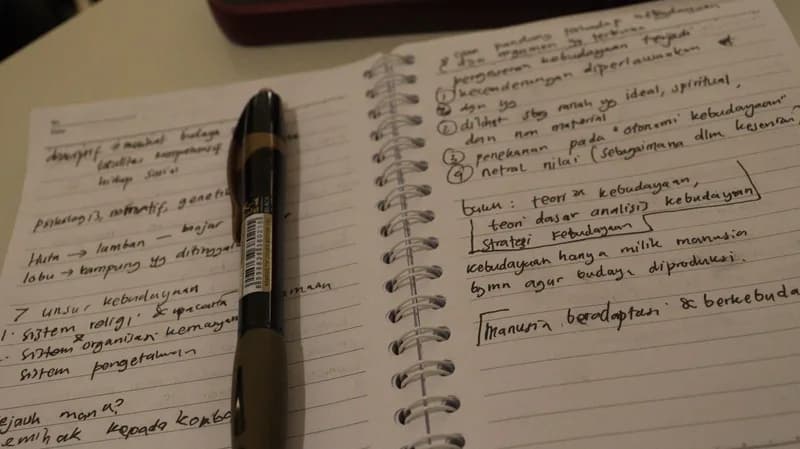 deskriptif → melihat budaya
totalitas komprehensif
hidup sosial
Psikologis, normatif, genetik
Huta → lamban — banjar
lobu → kampung yg ditinggal
7 unsur kebudayaan
1. sistem religi & upacara
sistem organisasi kemasya
sistem pengetahuan
ejauh mana?
emihak kepada
cara pandang terhadap kebudayaan
pergeseran kebudayaan terjadi
① kecenderungan diperlawankan
dgn yg
② dilihat sbg ranah yg ideal, spiritual,
dan non material
③ penekanan pada "otonomi kebudayaan"
④ netral nilai (sebagaimana dlm kesenian)
buku: teori² kebudayaan,
teori dasar analisis kebudayaan
strategi kebudayaan
kebudayaan hanya milik manusia
bgmn agar budaya diproduksi.
manusia beradaptasi & berkebuda